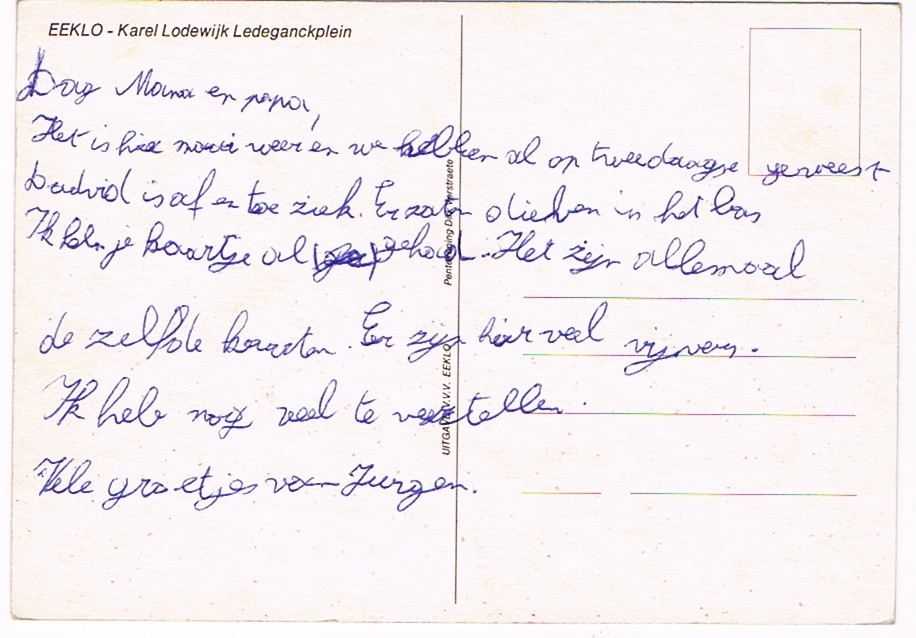 EEKLO - Karel Lodewijk Ledeganckplein
Dag Mama en papa,
Het is hier mooi weer en we hebben al op tweedaagse geweest
Dadvid is af en toe ziek. Er zaten dieven in het bos
Ik heb je kaartje al gehad. Het zijn allemaal
de zelfde kaarten. Er zijn hier veel vijvers.
Ik heb nog veel te vertellen.
Vele groetjes van Jurgen.
UITGAVE: V.V.V. EEKLO
Pentekening Dirk Verstraete